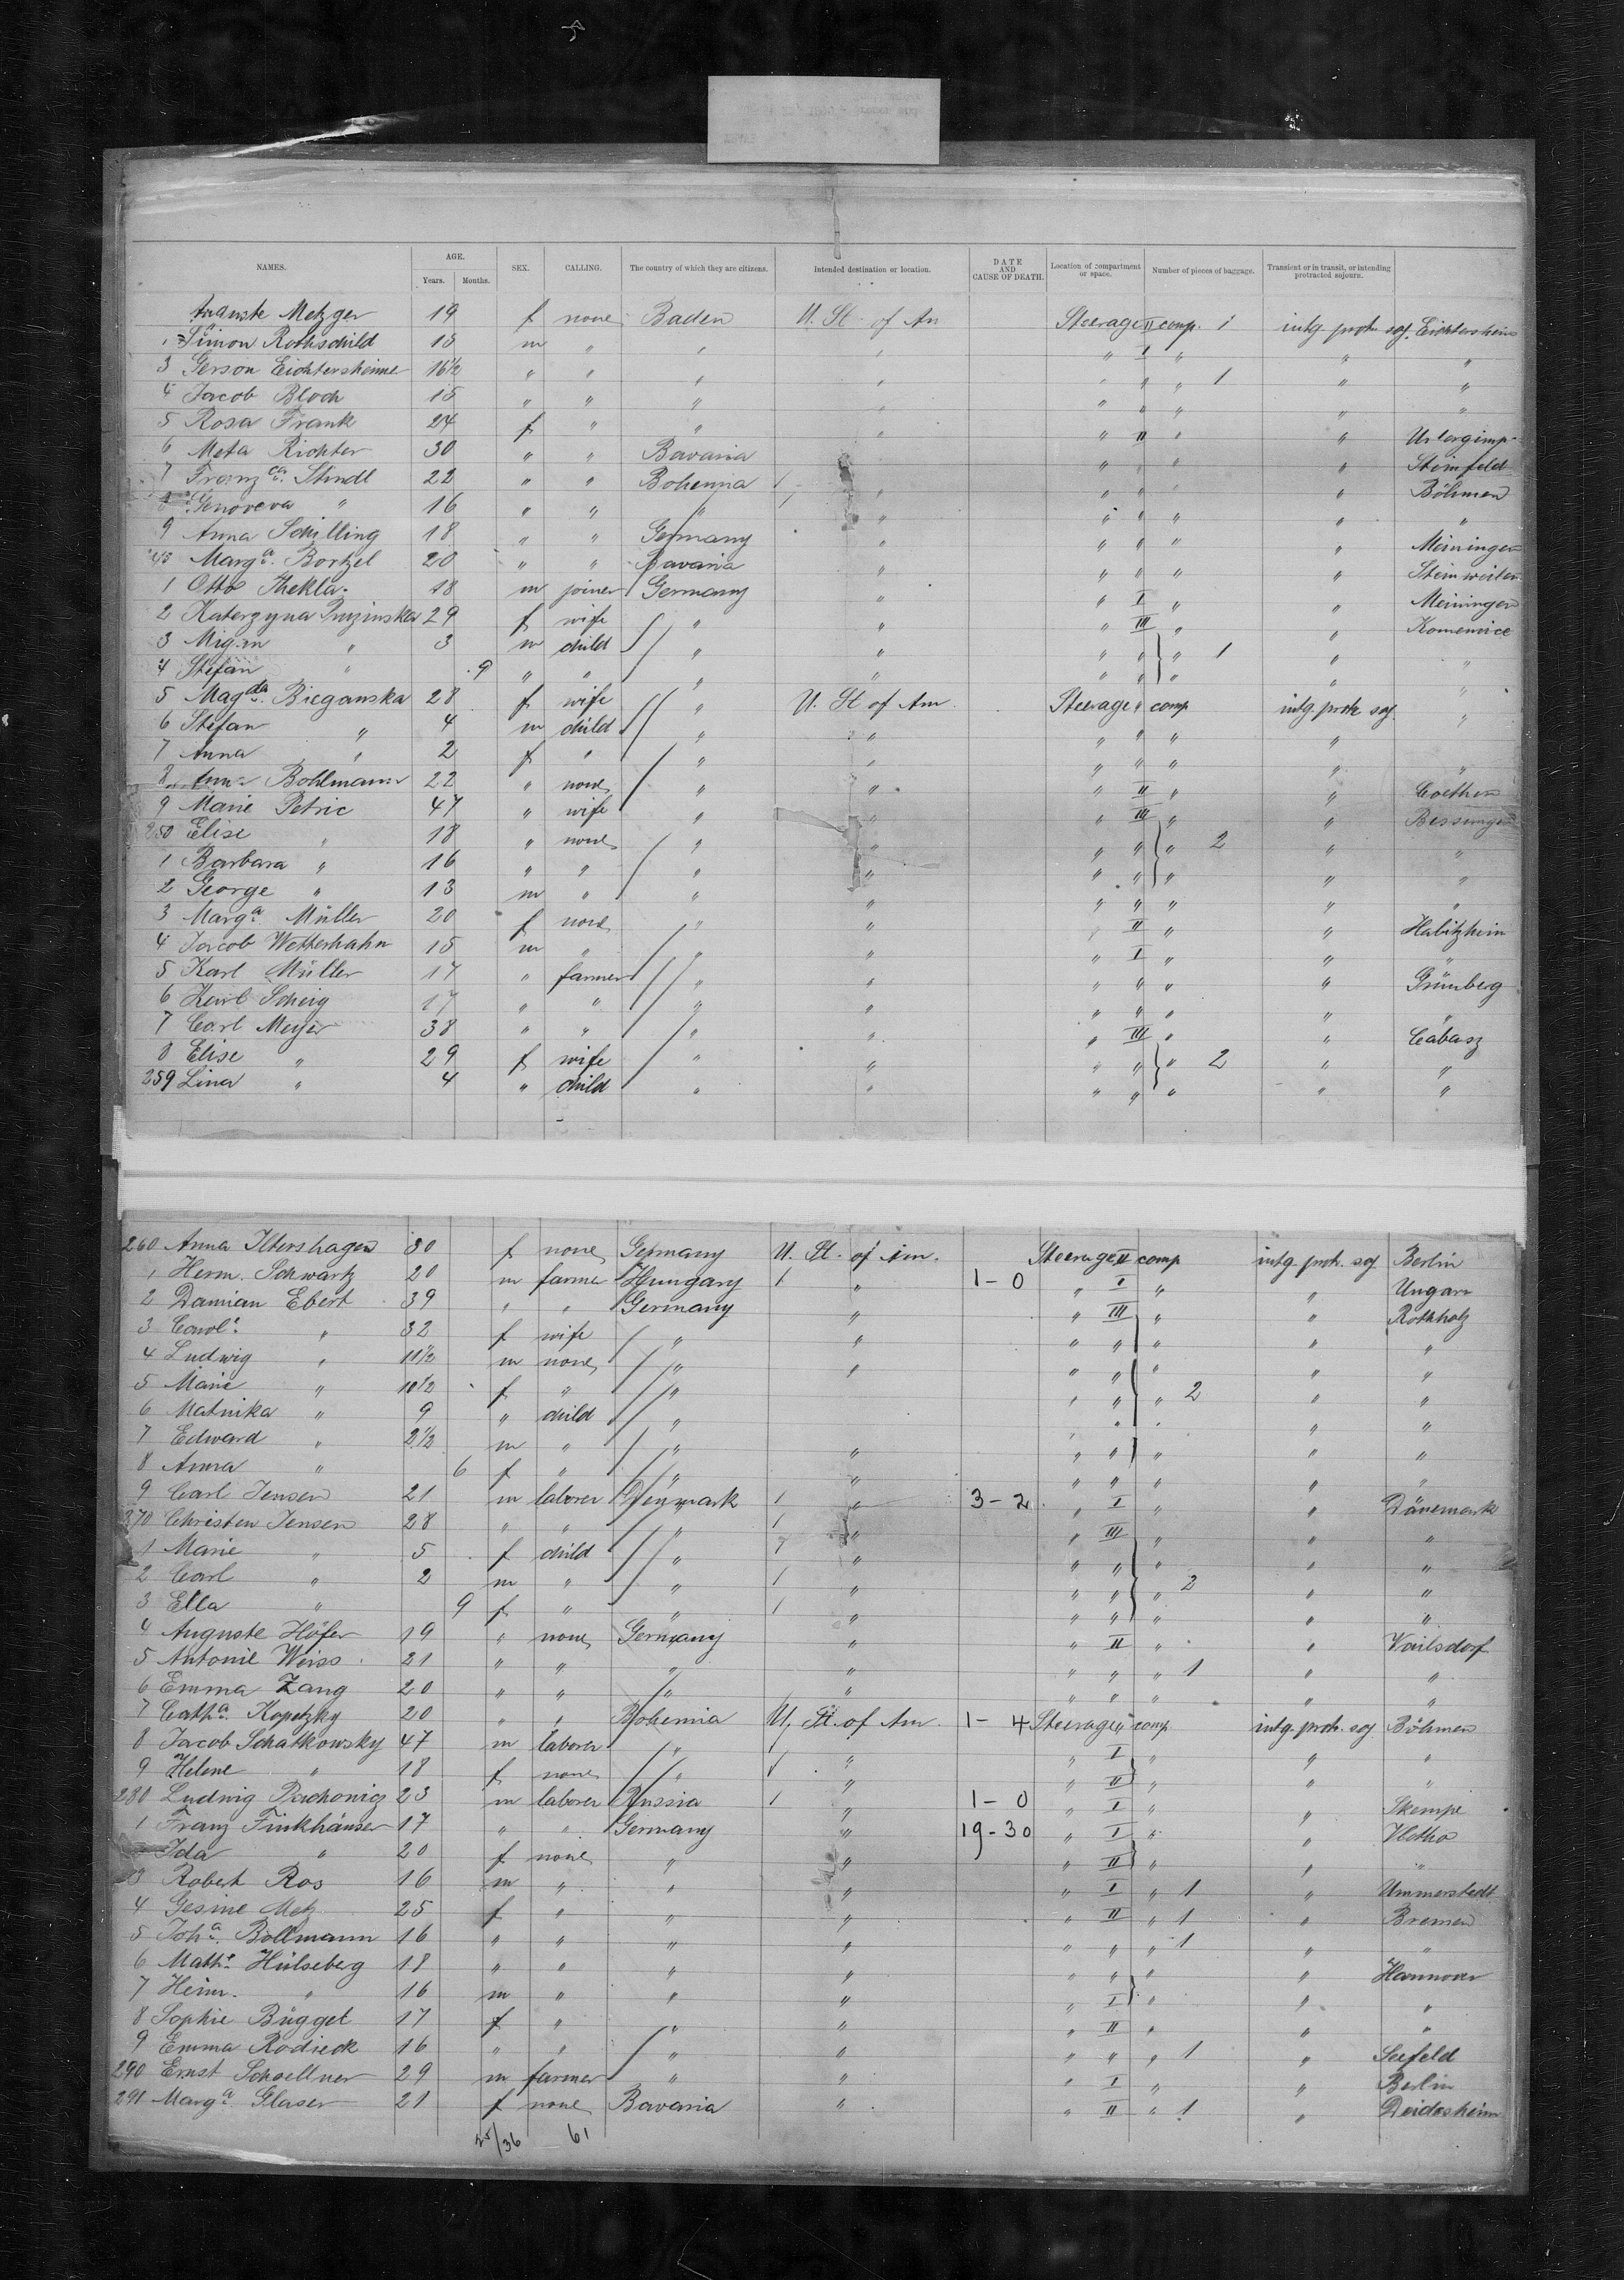 NAMES. AGE. Years. Months. SEX. CALLING. The country of which they are citizens. Intended destination or location. DATE AND CAUSE OF DEATH. Location of compartment or space. Number of pieces of baggage. Transient or in transit, or intending protracted sojourn.
Auguste Metzger 19 f none Baden U. St. of Am Steerage II comp. 1 intg. protr. soj. Eichtersheim
Simon Rothschild 15 m " " " " I " " "
3 Gerson Eichtersheimer 16½ " " " " " " " 1 " "
4 Jacob Bloch 15 " " " " " " " " "
5 Rosa Frank 24 f " " " " II " "
6 Meta Richter 30 " " Bavaria " " " Steinfeld
7 Franzca. Stindl 22 " " Bohemia " " " " " Böhmen
8 Genoveva " 16 " " " " " " " " "
9 Anna Schilling 18 " " Germany " " " " " Meiningen
Marga. Bortzel 20 " " Bavaria " " " " " Steinweiler
1 Otto Thekla 18 m joiner Germany " " I " " Meiningen
2 Katerzyna 29 f wife " " " III " " Komenice
3 3 m child " " " " " 1 " "
4 Stefan " 9 " " " " " " " " "
5 Magda. Bieganska 28 f wife " U. St of Am Steerage " comp intg. protr soj. "
6 Stefan " 4 m child " " " " " "
7 Anna " 2 f " " " " " " " "
8 Bohlmann 22 " none " " " II " " Coethen
9 Marie Petric 47 " wife " " " III " " Bessungen
250 Elise " 18 " none " " " " " 2 " "
1 Barbara " 16 " " " " " " " "
2 George " 13 m " " " " " " " "
3 Marga Müller 20 f none " " " II " " Habitzheim
4 Jacob Wetterhahn 15 m " " " " I " " "
5 Karl Müller 17 " farmer " " " " " " Grünberg
6 Karl Scheig 17 " " " " " " " " "
7 Carl Meyer 38 " " " " " III " " Cabasz
8 Elise " 29 f wife " " " " " 2 " "
259 Lina " 4 " child " " " " " " "
260 Anna Iltershagen 30 f none Germany U. St. of Am. Steerage II comp intg. protr. soj Berlin
1 Herm. Schwartz 20 m farmer Hungary " 1-0 " I " " Ungarn
2 Damian Ebert 39 " " Germany " " III " " Rothholz
3 Carol. " 32 f wife " " " " " " "
4 Ludwig " 11½ m none " " " " " " "
5 Marie " 10½ f " " " " " 2 " "
6 Matnika " 9 " child " " " " "
7 Edward " 2½ m " " " " " " " "
8 Anna " 6 f " " " " " " " "
9 Carl Jensen 21 m laborer Denmark " 3-2 " I " " Dänemark
270 Christen Jensen 28 " " " " " III " "
1 Marie " 5 f child " " " " " " "
2 Carl " 2 m " " " " " " 2 " "
3 Ella " 9 f " " " " " " " "
4 Auguste Höfer 19 " none Germany " " II " " Vailsdorf
5 Antonie Weiss 21 " " " " " " " 1 " "
6 Emma Zang 20 " " " " " " " " "
7 Catha. Kopetzky 20 " " Bohemia U. St. of Am. 1-4 Steerage " comp. intg. protr. soj Böhmen
8 Jacob Schatkowsky 47 m laborer " " " I " " "
9 Helene " 18 f none " " " II " " "
280 Ludwig 23 m laborer Russia " 1-0 " I " " Skempe
1 Franz Finkhäuser 17 " " Germany " 19-30 " I " " Vlotho
Ida " 20 f none " " " II " " "
3 Robert Ros 16 m " " " " I " 1 " Ummerstedt
4 Gesine Metz 25 f " " " " II " 1 " Bremen
5 Joha. Bollmann 16 " " " " " " " 1 " "
6 Hülseberg 18 " " " " " " " " Hannover
7 Heinr. " 16 m " " " " I " " "
8 Sophie Büggel 17 f " " " " II " " "
9 Emma Rodieck 16 " " " " " " " 1 " Seefeld
290 Ernst Schoellner 29 m farmer " " " I " " Berlin
291 Marga Glaser 21 f none Bavaria " " II " 1 " Deidesheim
25/36 61